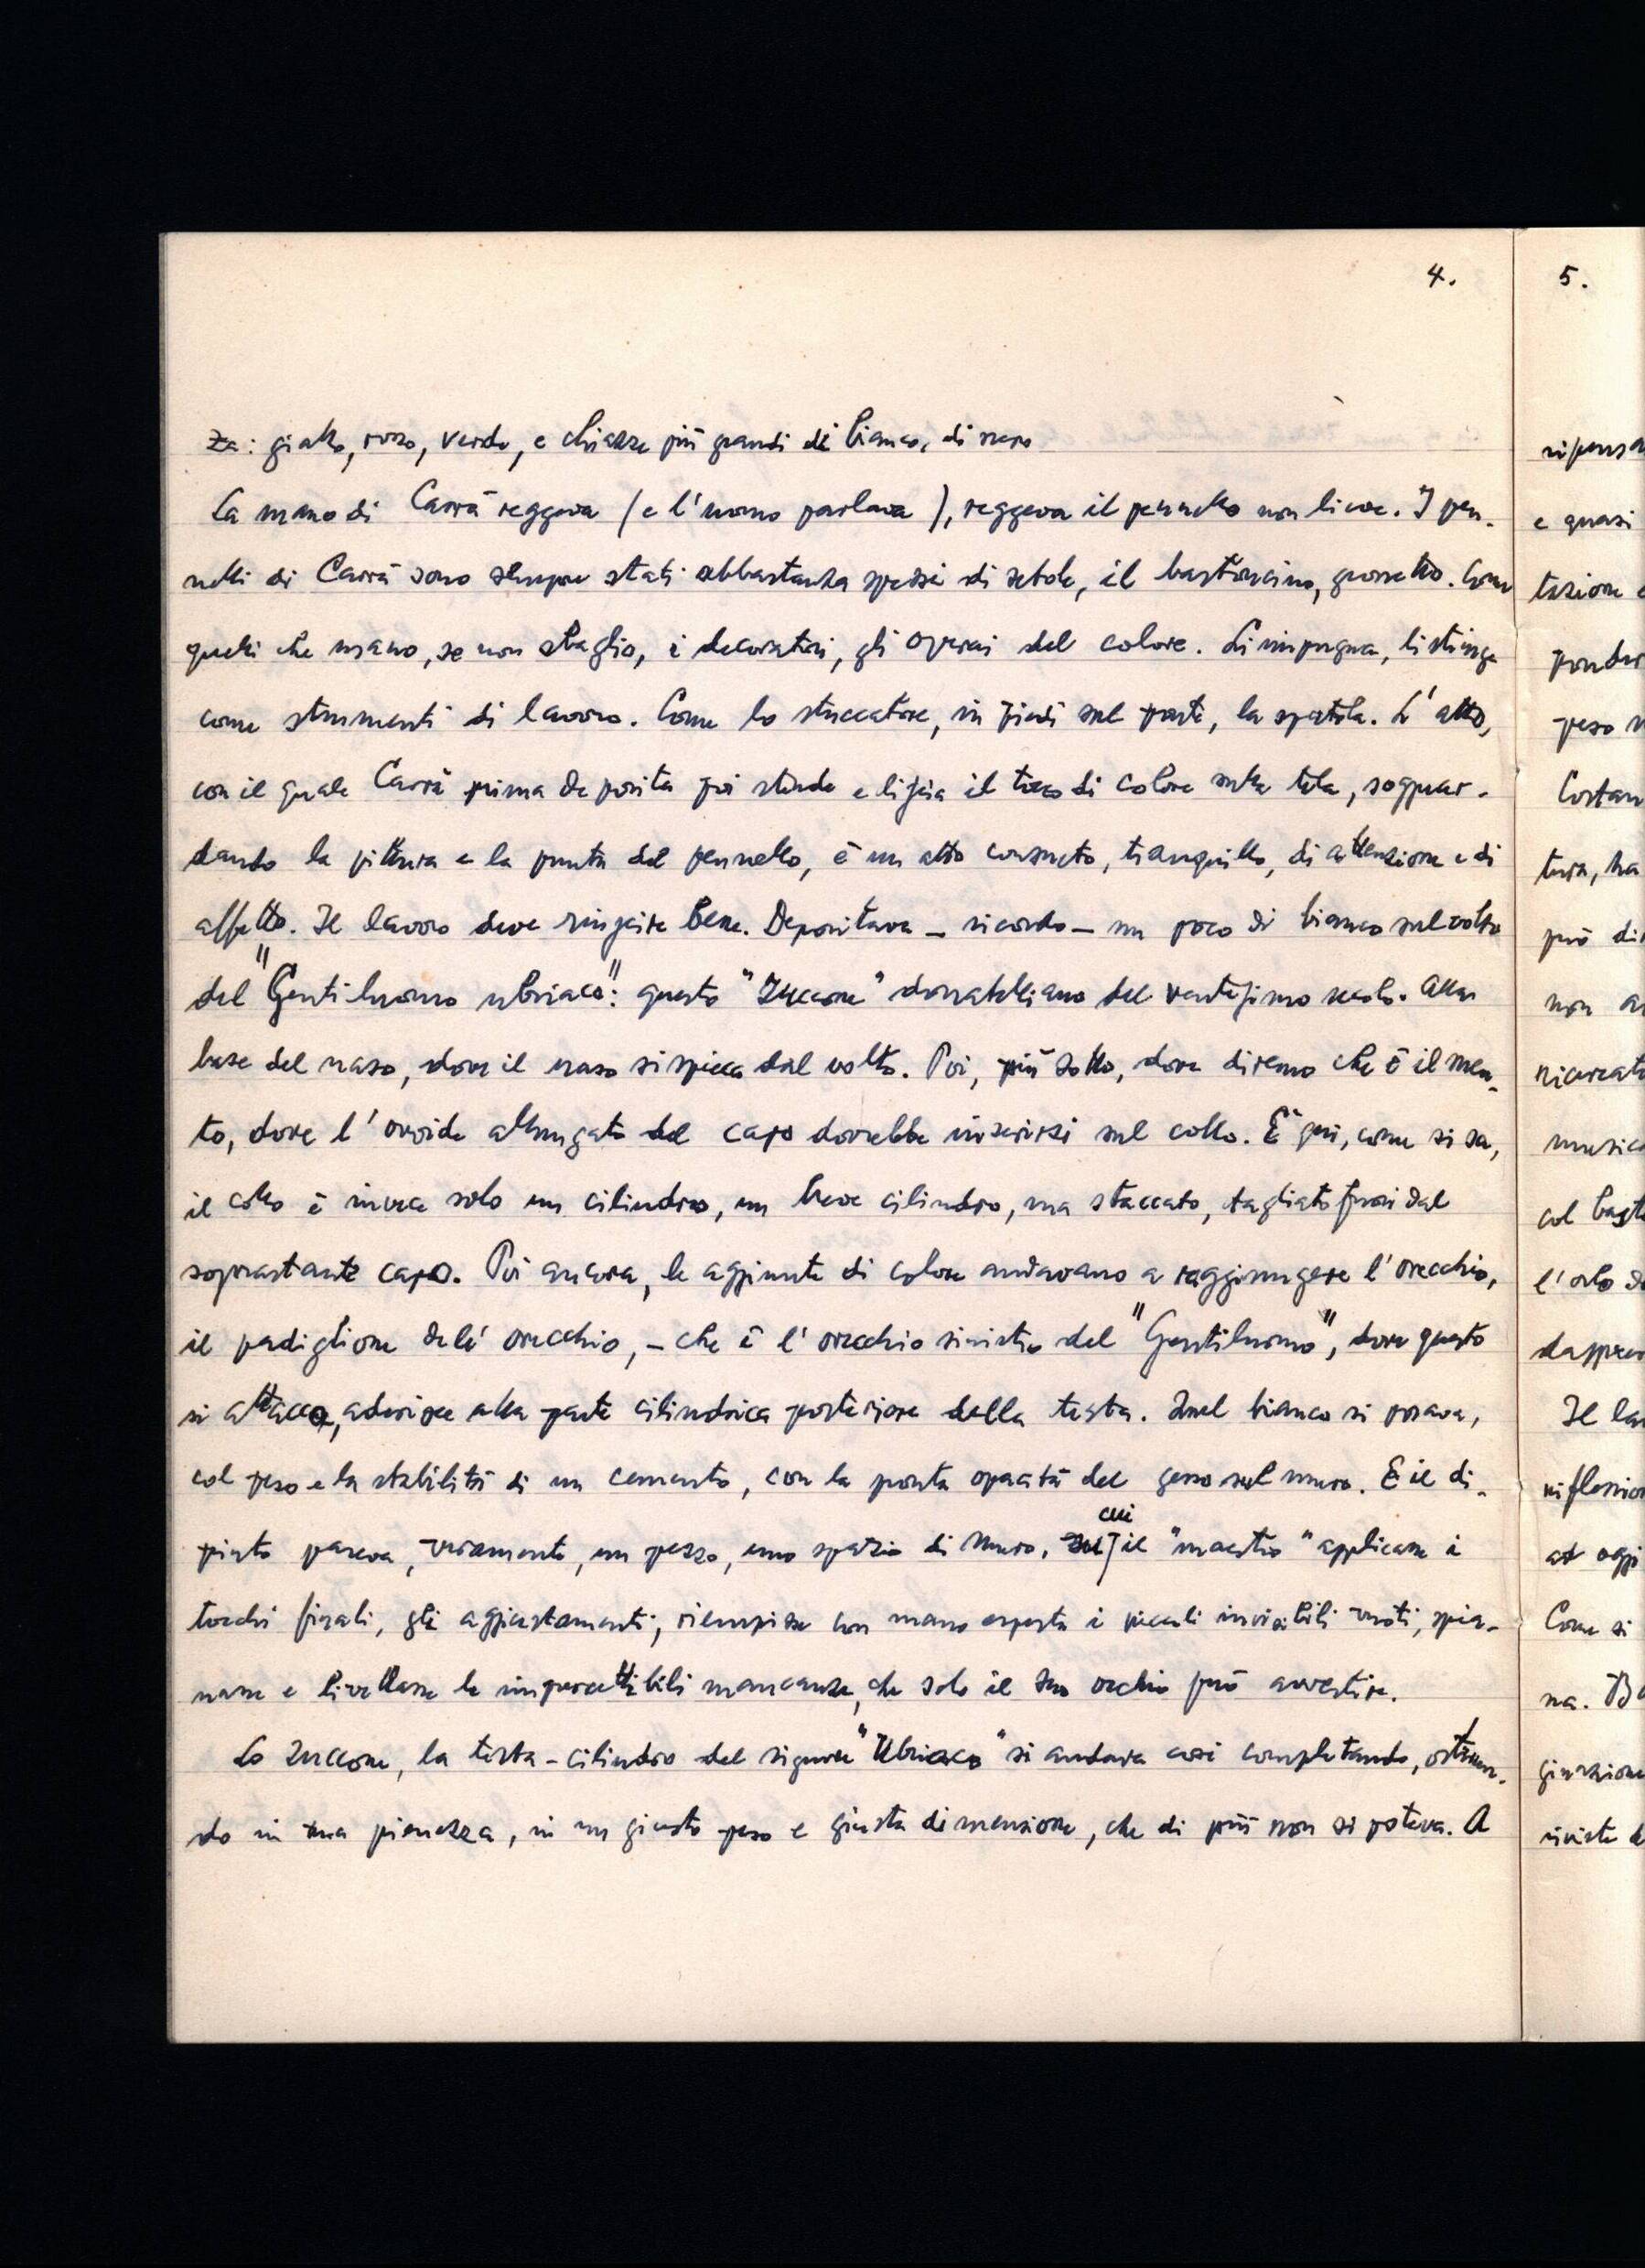 4.
za: giallo, rosso, verde, e chiazze più grandi di bianco, di nero
La mano di Carrà reggeva (e l'uomo parlava), reggeva il pennello non lieve. I pen-
nelli di Carrà sono sempre stati abbastanza spessi di setole, il bastoncino, grossetto. Come
quelli che usano, se non sbaglio, i decoratori, gli operai del colore. Li impugna, li stringe
come strumenti di lavoro. Come lo stuccatore, in piedi sul ponte, la spatola. L'atto,
con il quale Carrà prima deposita poi stende e liscia il tocco di colore sulla tela, sogguar-
dando la pittura e la punta del pennello, è un atto consueto, tranquillo, di attenzione e di
affetto. Il lavoro deve riuscire bene. Depositava - ricordo - un poco di bianco sul volto
del "Gentiluomo ubriaco": questo "Zuccone" donatelliano del ventesimo secolo. Alla
base del naso, dove il naso si spicca dal volto. Poi, più sotto, dove diremo che è il men-
to, dove l'ovoide allungato del capo dovrebbe inserirsi sul collo. E qui, come si sa,
il collo è invece solo un cilindro, un breve cilindro, ma staccato, tagliato fuori dal
soprastante capo. Poi ancora, le aggiunte di colore andavano a raggiungere l'orecchio,
il padiglione dell'orecchio, - che è l'orecchio sinistro del "Gentiluomo", dove questo
si attacca, aderisce alla parte cilindrica posteriore della testa. Quel bianco si posava,
col peso e la stabilità di un cemento, con la pronta opacità del gesso sul muro. E il di-
pinto pareva, veramente, un pezzo, uno spazio di muro, su cui il "maestro" applicasse i
tocchi finali, gli aggiustamenti, riempisse con mano esperta i piccoli invisibili vuoti, spia-
nasse e livellasse le impercettibili mancanze, che solo il suo occhio può avvertire.
Lo Zuccone, la testa-cilindro del signore "Ubriaco" si andava così completando, ostenen-
do in una pienezza, in un giusto peso e giusta dimensione, che di più non si poteva. A
5.
ripensa
e quasi
tazione e
ponder
peso
Costan
tura, ha
può di
non a
ricercat
musica
col basto
l'orlo d
dappres
Il la
riflession
ad oggi
Come si
na.
giunzione
riviste